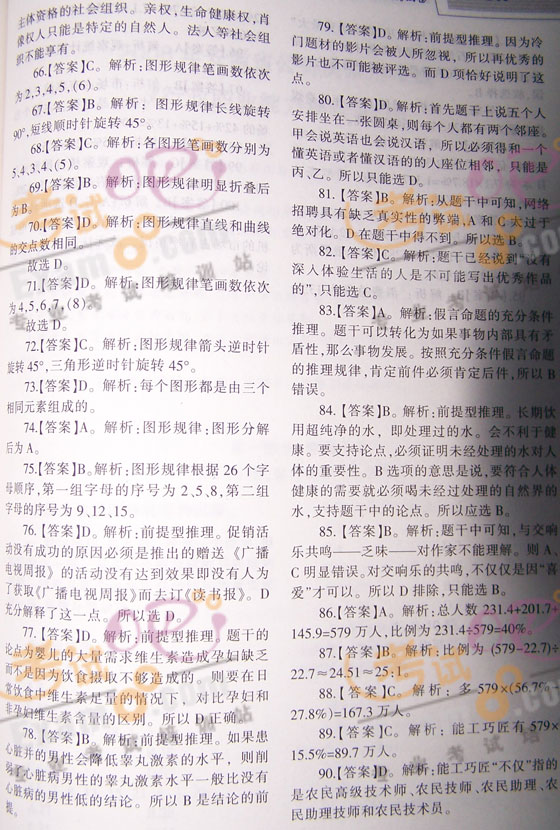 主体资格的社会组织。亲权,生命健康权,肖
像权人只能是特定的自然人。法人等社会组
织不能享有。
66.【答案】C。解析:图形规律笔画数依次
为2,3,4,5,(6)。
67.【答案】B。解析:图形规律长线旋转
90°,短线顺时针旋转45°。
68.【答案】C。解析:各图形笔画数分别为
5,4,3,4,(5)。
69.【答案】B。解析:图形规律明显折叠后
为B。
70.【答案】D。解析:图形规律直线和曲线
的交点数相同。
故选D。
71.【答案】D。解析:图形规律笔画数依次
为4,5,6,7,(8)。
故选D。
72.【答案】C。解析:图形规律箭头逆时针
旋转45°,三角形逆时针旋转45°。
73.【答案】D。解析:每个图形都是由三个
相同元素组成的。
74.【答案】A。解析:图形规律;图形分解
后为A。
75.【答案】B。解析:图形规律根据26个字
母顺序,第一组字母的序号为2、5、8,第二组
字母的序号为9、12、15。
76.【答案】D。解析:前提型推理。促销活
动没有成功的原因必须是推出的赠送《广播
电视周报》的活动没有达到效果即没有人为
了获取《广播电视周报》而去订《读书报》。D
充分解释了这一点。所以选D。
77.【答案】D。解析:前提型推理,题干的
论点为婴儿的大量需求维生素造成孕妇缺乏
而不是因为饮食摄取不够造成的。则要在日
常饮食中维生素足量的情况下,对比孕妇和
非孕妇维生素含量的区别。所以D正确。
78.【答案】B。解析:前提型推理。如果患
心脏并的男性会降低睾丸激素的水平,则削
弱了心脏病男性的睾丸激素水平一般比没有
心脏病的男性低的结论。所以B是结论的前
提。
79.【答案】D。解析:前提型推理。因为冷
门题材的影片会被人所忽视,所以再优秀的
影片也不可能被评选。而D项恰好说明了这
点。
80.【答案】D。解析:首先题干上说五个人
安排坐在一张圆桌,则每个人都有两个邻座。
甲会说英语也会说汉语,所以必须得和一个
懂英语或者懂汉语的的人座位相邻,只能是
丙、乙。所以只能选D。
81.【答案】B。解析:从题干中可知,网络
招聘具有缺乏真实性的弊端,A和C太过于
绝对化。D在题干中得不到。所以选B。
82.【答案】C。解析:题干已经说到“没有
深入体验生活的人是不可能写出优秀作品
的”,只能选C。
83.【答案】A。解析:假言命题的充分条件
推理。题干可以转化为如果事物内部具有矛
盾性,那么事物发展。按照充分条件假言命题
的推理规律,肯定前件必须肯定后件,所以B
错误。
84.【答案】B。解析:前提型推理。长期饮
用超纯净的水,即处理过的水。会不利于健
康。要支持论点,必须证明未经处理的水对人
体的重要性。B选项的意思是说,要符合人体
健康的需要就必须喝未经过处理的自然界的
水,支持题干中的论点。所以应选B。
85.【答案】B。解析:题干中可知,与交响
乐共鸣——乏味——对作家不能理解。则A、
C明显错误。对交响乐的共鸣,不仅仅是因“喜
爱”才可以。所以D排除,只能选B。
86.【答案】A。解析:总人数231.4+201.7+
145.9=579万人,比例为231.4÷579=40%。
87.【答案】B。解析:比例为(579-22.7)÷
22.7≈24.51≈25:1。
88.【答案】C。解析:多579×(56.7%-
27.8%)=167.3万人。
89.【答案】C。解析:能工巧匠有579×
15.5%=89.7万人。
90.【答案】D。解析:能工巧匠“不仅”指的
是农民高级技术师、农民技师、农民助理、农
民助理技师和农民技术员。